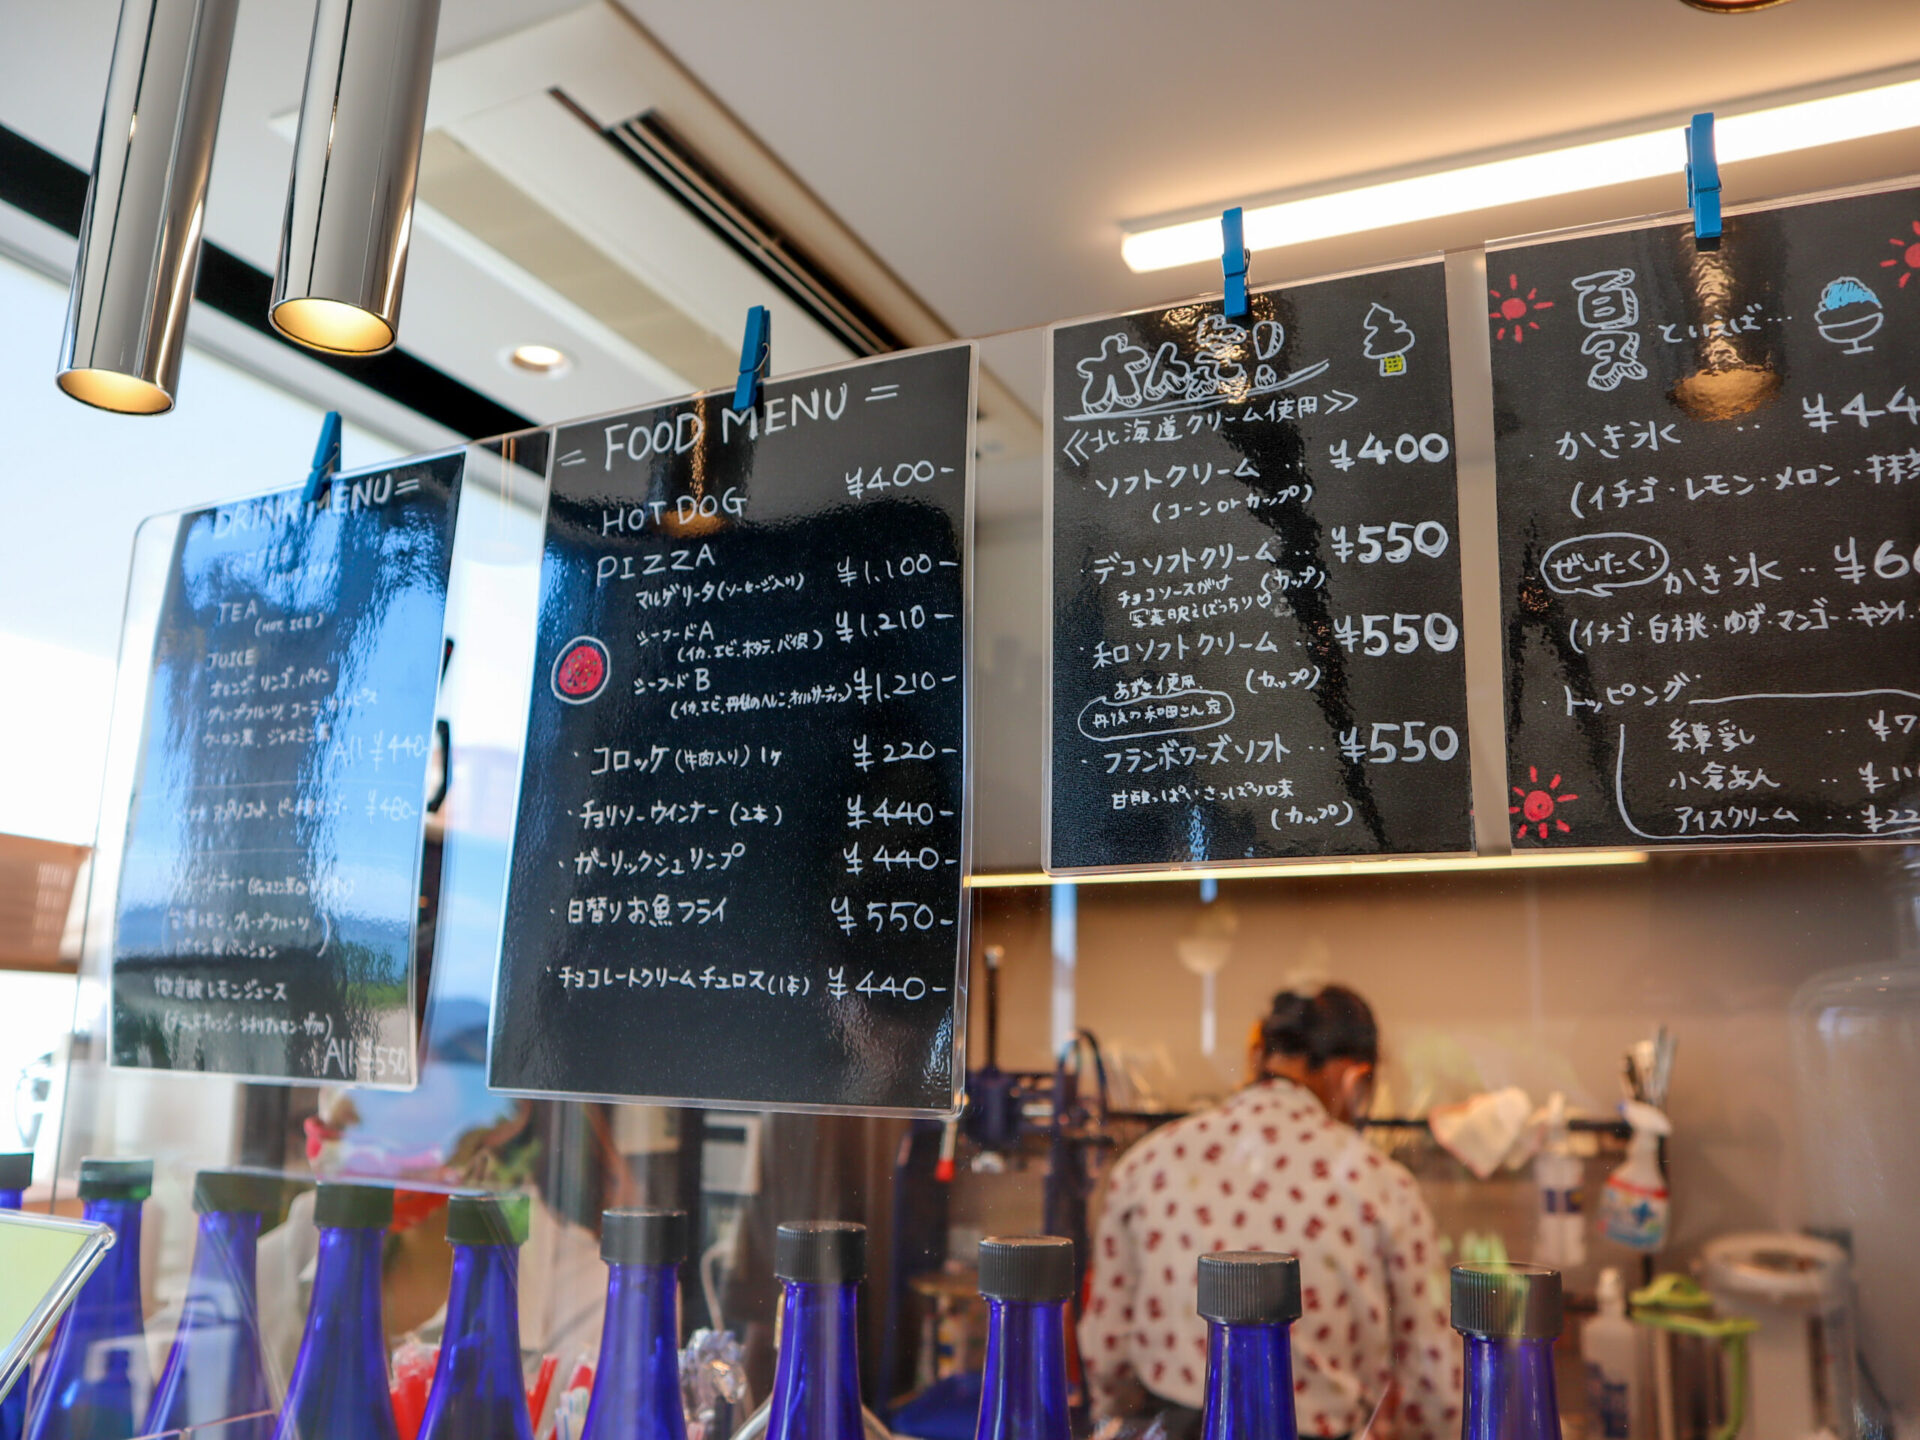 DRINK MENU=
TEA
(HOT, ICE)
JUICE
オレンジ、リンゴ、パイン
グレープフルーツ、コーラ、カルピス
ウーロン茶、ジャスミン茶
All ¥440-
¥480-
(台湾レモン、グレープフルーツ
パイン&パッション)
微炭酸レモンジュース
All ¥550
= FOOD MENU =
HOT DOG ¥400-
・PIZZA
マルゲリータ(ソーセージ入り) ¥1.100-
シーフードA ¥1.210-
(イカ、エビ、ホタテ、バイ貝)
シーフードB ¥1.210-
・コロッケ(牛肉入り)1ヶ ¥220-
・チョリソーウインナー(2本) ¥440-
・ガーリックシュリンプ ¥440-
・日替りお魚フライ ¥550-
・チョコレートクリームチュロス(1本) ¥440-
≪北海道クリーム使用≫
・ソフトクリーム ‥ ¥400
(コーンorカップ)
・デコソフトクリーム ‥ ¥550
チョコソースがけ (カップ)
写真映えばっちり♡
・和ソフトクリーム ‥ ¥550
あずき使用 (カップ)
丹後の和田さん家
・フランボワーズソフト ‥ ¥550
甘酸っぱいさっぱり味
(カップ)
夏といえば…
・かき氷 ‥ ¥44
(イチゴ・レモン・メロン・抹茶
ぜいたく!かき氷 ‥ ¥6
(イチゴ・白桃・ゆず・マンゴー・キウイ
・トッピング・
練乳 ‥ ¥7
小倉あん ‥ ¥11
アイスクリーム ‥ ¥22